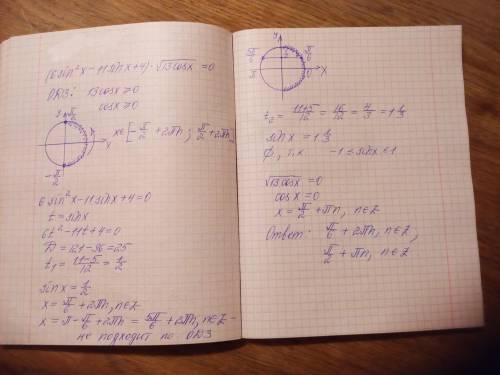 (6sin²x-11sinx+4)·√13cosx =0
ОДЗ: 13cosx ≥0
cosx ≥0
y π/2
x
-π/2
x∈[-π/2+2πn; π/2+2πn]
6sin²x-11sinx+4=0
t=sinx
6t²-11t+4=0
D=121-96=25
t₁=(11-5)/12=1/2
sinx=1/2
x=π/6+2πn, n∈Z
x=π-π/6+2πn=5π/6+2πn, n∈Z -
не подходит по ОДЗ
y
5π/6 π/6
π 0 x
t₂=(11+5)/12=16/12=4/3=1 1/3
sinx=1 1/3
∅, т.к -1≤sinx≤1
√13cosx=0
cosx=0
x=π/2+πn, n∈Z
Ответ: π/6+2πn, n∈Z,
π/2+πn, n∈Z